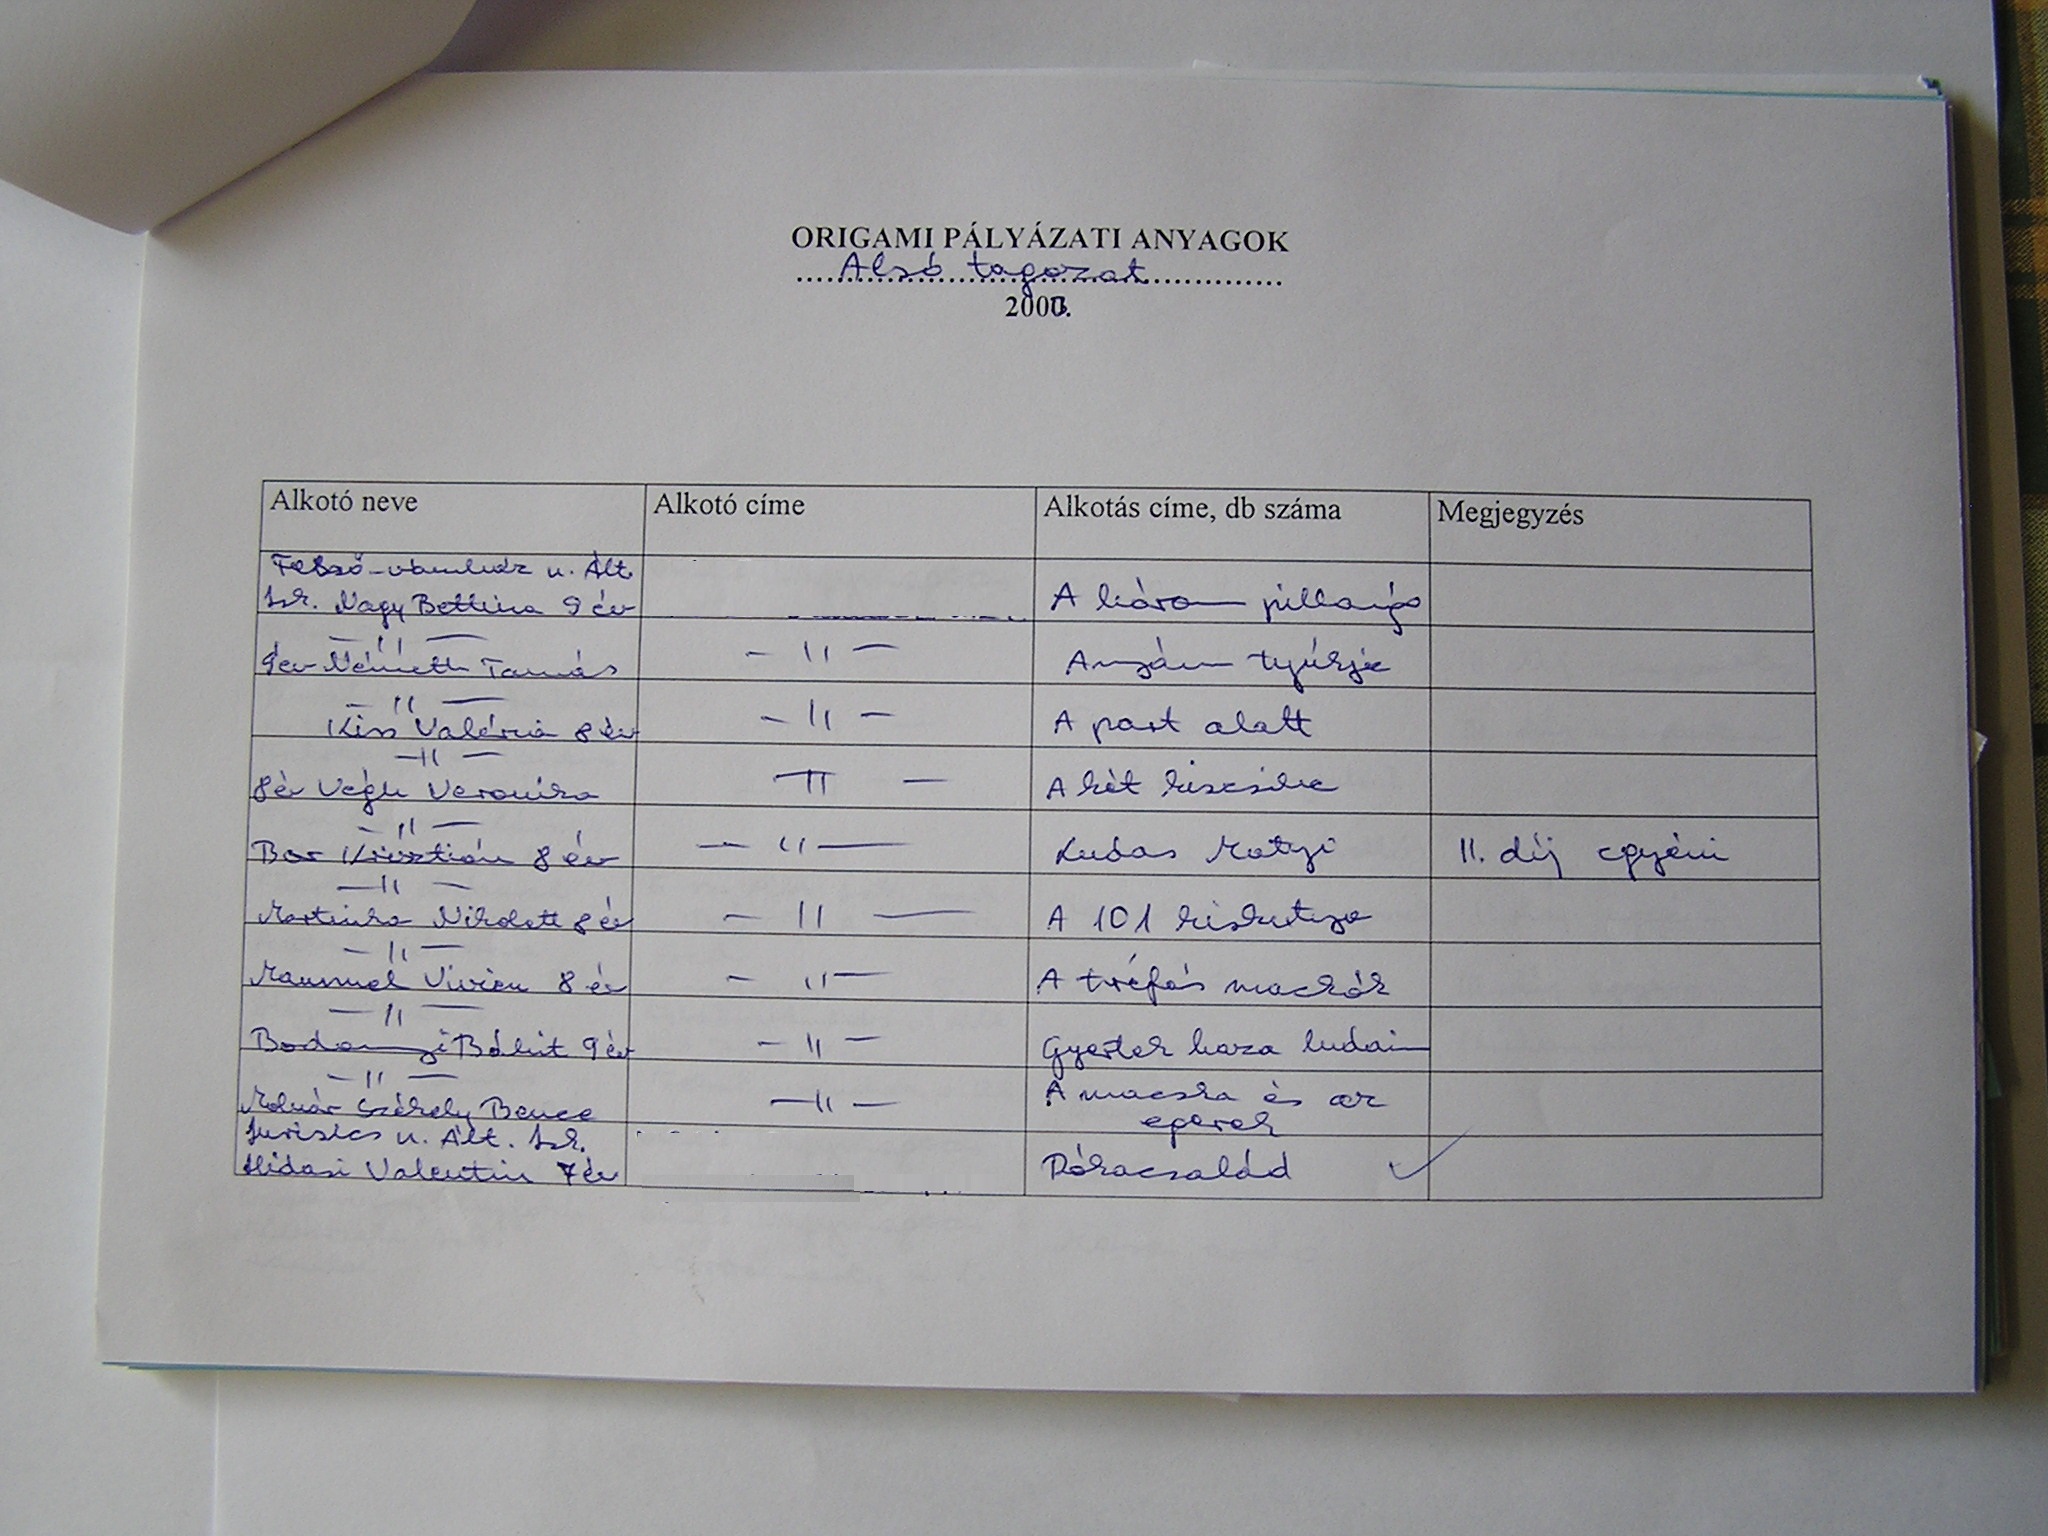 ORIGAMI PÁLYÁZATI ANYAGOK
Alsó tagozat
Alkotó neve Alkotó címe Alkotás címe, db száma Megjegyzés
Felső-vámház u. Ált.
Isk. Nagy Bettina 9 év A három pillangó
— 〃 —
9 év Németh Tamás — 〃 — Anyám tyúkja
— 〃 —
Kiss Valéria 8 év — 〃 — A part alatt
— 〃 —
8 év Végh Veronika 〃 — A két kiscsibe
— 〃 —
Bor Krisztián 8 év — 〃 — Ludas Matyi II. díj egyéni
— 〃 —
Martinka Nikolett 8 év — 〃 — A 101 kiskutya
— 〃 —
Mammel Vivien 8 év — 〃 — A tréfás mackók
— 〃 —
Bálint 9 év — 〃 — Gyertek haza ludaim
— 〃 —
Molnár Székely Bence — 〃 — A macska és az
egerek
Jurisics u. Ált. Isk.
Hidasi Valentin 7 év Rókacsalád ✓